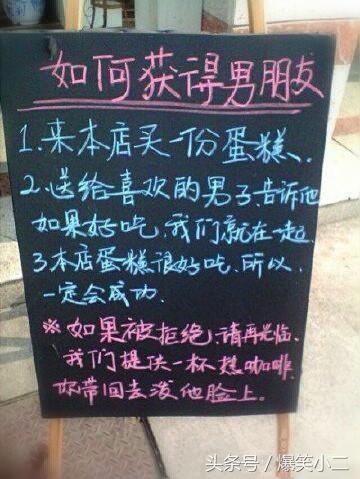 如何获得男朋友
1.来本店买一份蛋糕.
2.送给喜欢的男子,告诉他
如果好吃,我们就在一起.
3本店蛋糕很好吃.所以
一定会成功.
※如果被拒绝,请再光临,
我们提供一杯热咖啡.
你带回去泼他脸上。
头条号/爆笑小二